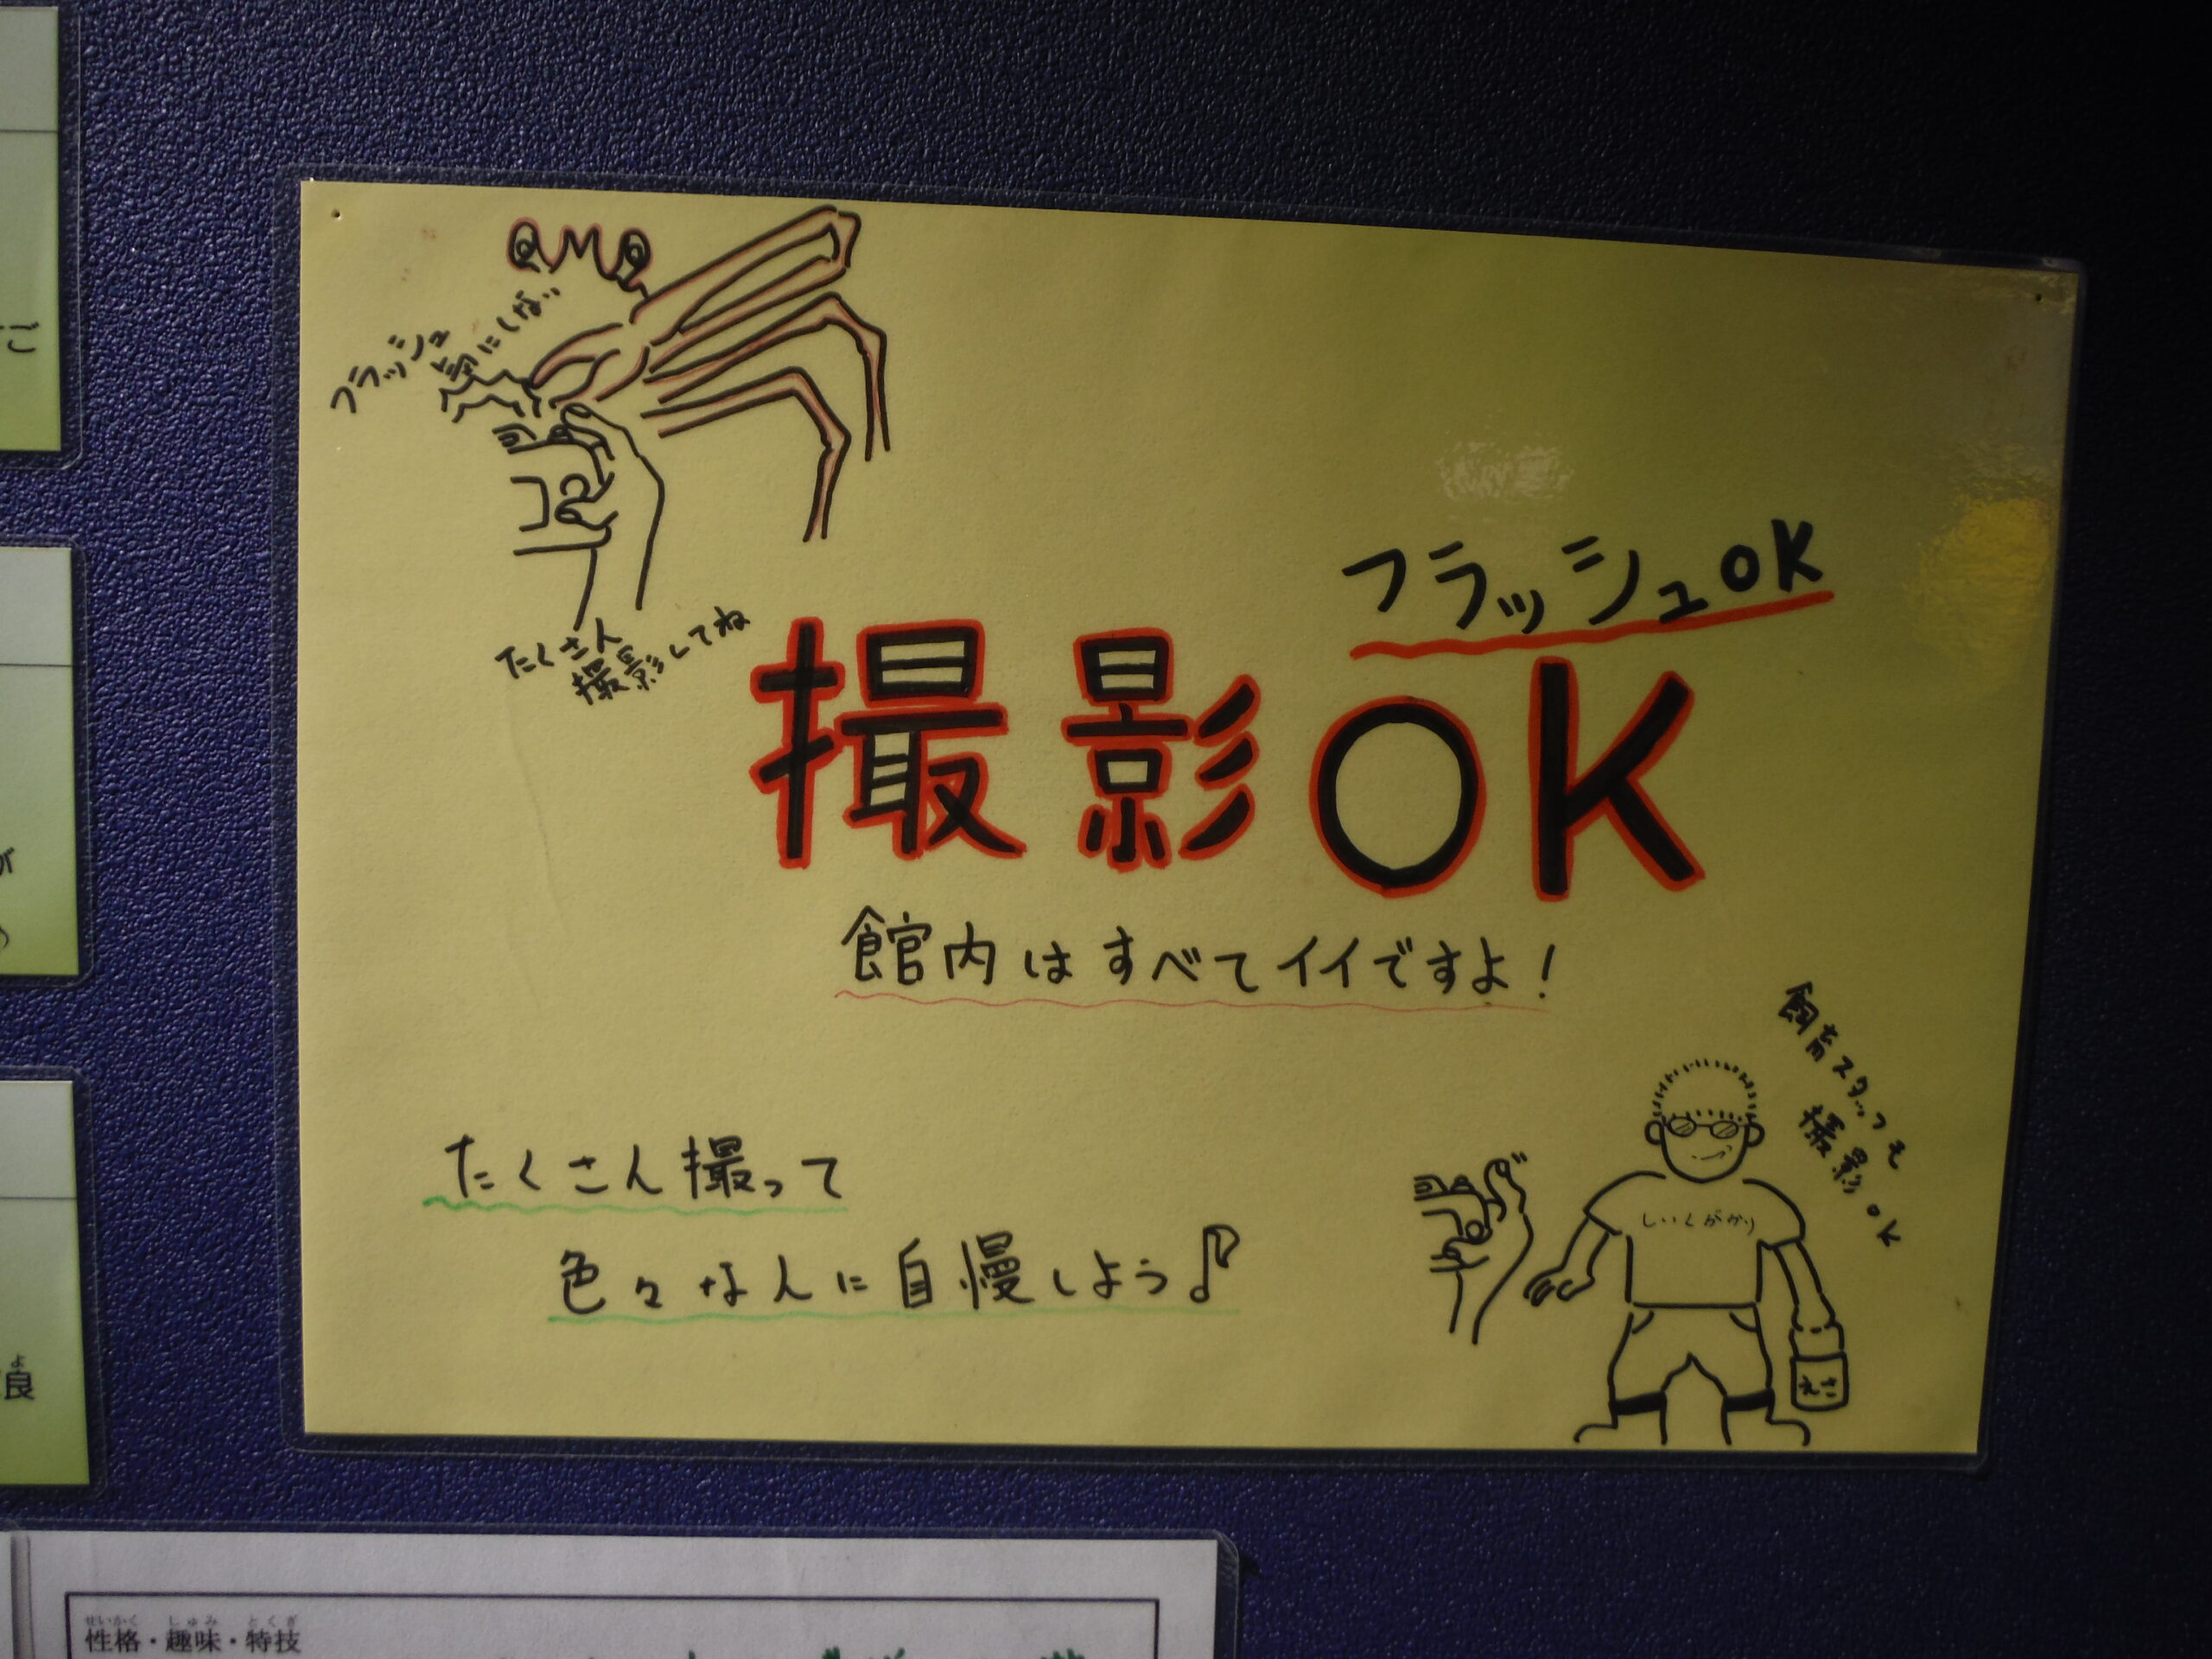 フラッシュ
気にしな〜
たくさん
撮影してね
フラッシュOK
撮影OK
館内はすべてイイですよ！
たくさん撮って
色々な人に自慢しよう♪
飼育スタッフも
撮影OK
しいくがかり
えさ
ご
が
よ
良
せいかく しゅみ とくぎ
性格・趣味・特技